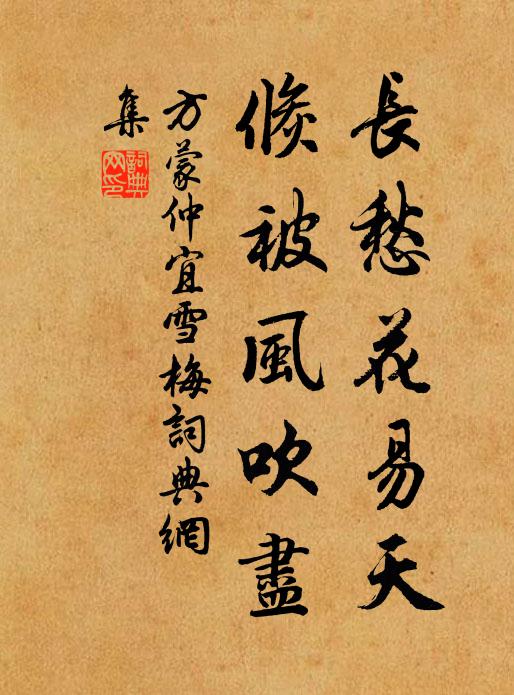 長愁花易天
倏被風吹盡
方蒙仲宜雪梅詞典網
集
詞典網印